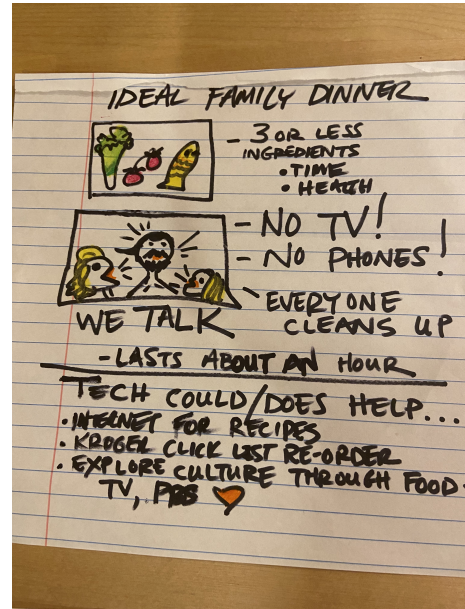 IDEAL FAMILY DINNER
- 3 OR LESS
INGREDIENTS
• TIME
• HEALTH
- NO TV!
- NO PHONES!
- EVERYONE
CLEANS UP
WE TALK
- LASTS ABOUT AN HOUR
TECH COULD/DOES HELP...
• INTERNET FOR RECIPES
• KROGER CLICK LIST RE-ORDER
• EXPLORE CULTURE THROUGH FOOD -
TV, PBS